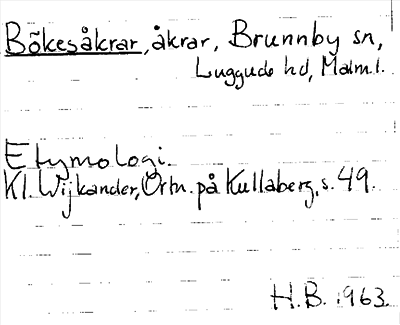 Bökesåkrar, åkrar, Brunnby sn,
Luggude hd, Malm.l.
Etymologi.
Kl. Wijkander, Ortn. på Kullaberg, s. 49.
H.B. 1963.